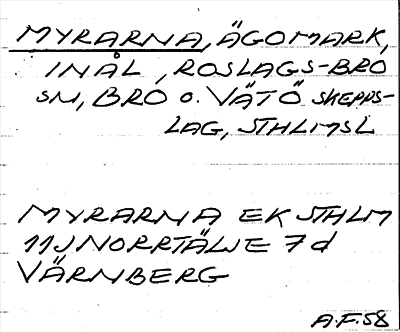 MYRARNA, ÄGOMARK,
INÅL, ROSLAGS-BRO
SN, BRO O. VÄTÖ SKEPPS-
LAG, STHLMSL
MYRARNA EK STHLM
11J NORRTÄLJE 7d
VÄRNBERG
A.F. 58